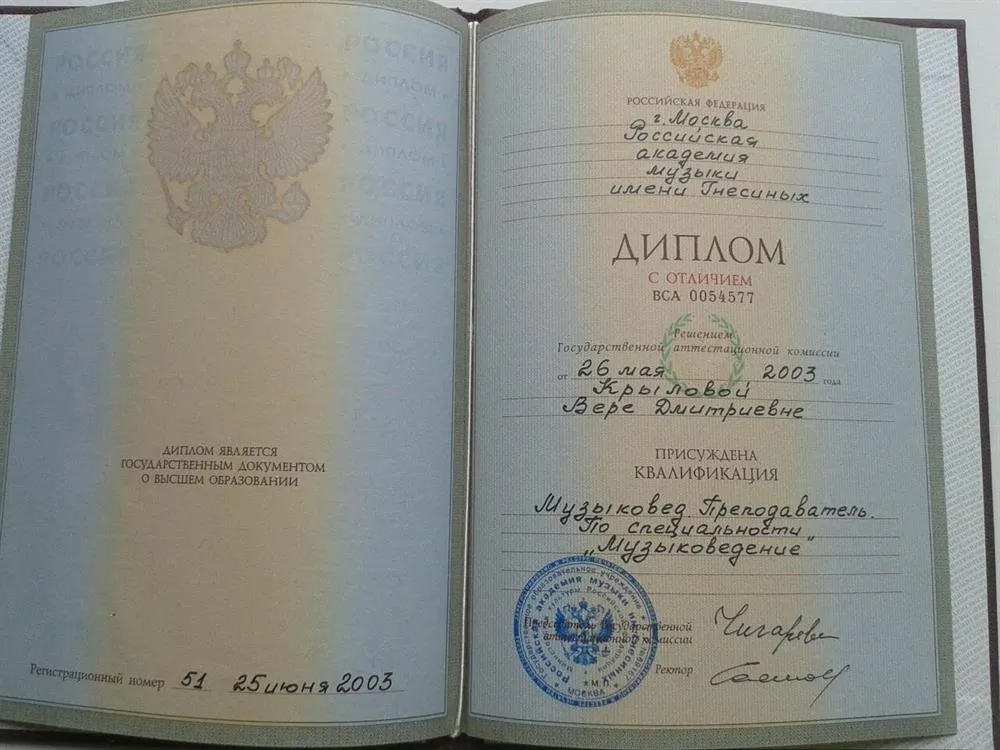 ДИПЛОМ ЯВЛЯЕТСЯ
ГОСУДАРСТВЕННЫМ ДОКУМЕНТОМ
О ВЫСШЕМ ОБРАЗОВАНИИ
Регистрационный номер 51 25 июня 2003
РОССИЙСКАЯ ФЕДЕРАЦИЯ
г. Москва
Российская
академия
музыки
имени Гнесиных
ДИПЛОМ
С ОТЛИЧИЕМ
ВСА 0054577
Решением
Государственной аттестационной комиссии
от 26 мая 2003 года
Крыловой
Вере Дмитриевне
ПРИСУЖДЕНА
КВАЛИФИКАЦИЯ
Музыковед. Преподаватель.
По специальности
„Музыковедение"
Председатель Государственной
аттестационной комиссии
Ректор
М.П.
МОСКВА